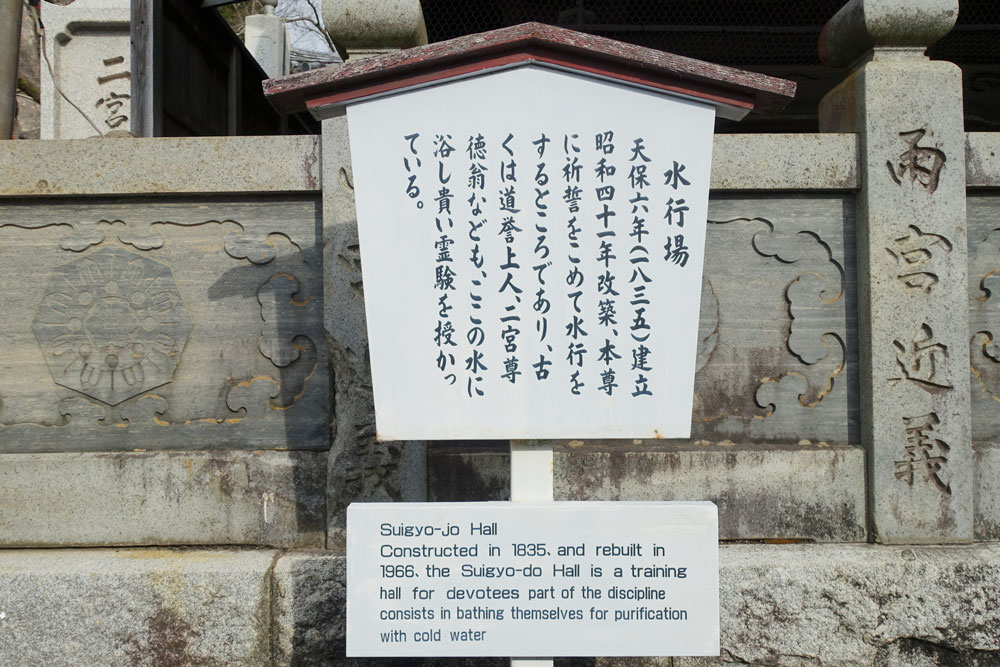 水行場
天保六年(一八三五)建立
昭和四十一年改築、本尊
に祈誓をこめて水行を
するところであり、古
くは道誉上人、二宮尊
徳翁なども、ここの水に
浴し貴い霊験を授かっ
ている。
Suigyo-jo Hall
Constructed in 1835, and rebuilt in
1966, the Suigyo-do Hall is a training
hall for devotees part of the discipline
consists in bathing themselves for purification
with cold water
雨宮近義
二宮